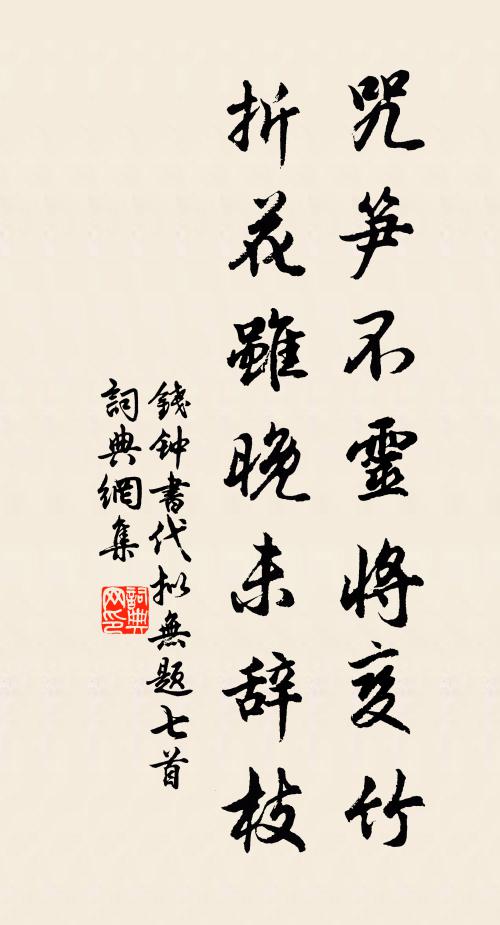 咒笋不靈将变竹
折花雖晚未辞枝
錢钟書代拟無题七首
詞典網集
詞典网印